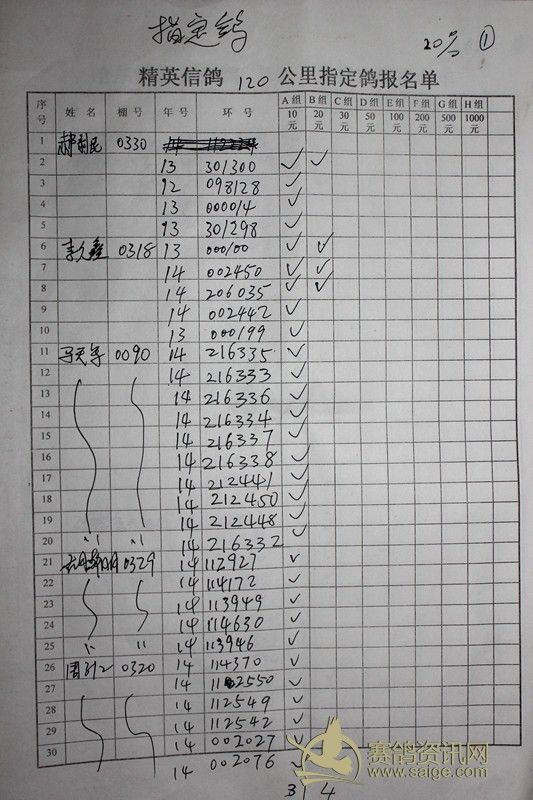 指定鸽
20% ①
精英信鸽 120 公里指定鸽报名单
序号 姓名 棚号 年号 环号 A组10元 B组20元 C组30元 D组50元 E组100元 F组200元 G组500元 H组1000元
1 0330 14 112224
2 13 301300 ✓ ✓
3 12 098128 ✓
4 13 000014 ✓
5 13 301298 ✓
6 0318 13 000100 ✓ ✓
7 14 002450 ✓ ✓
8 14 206035 ✓ ✓
9 14 002442 ✓
10 13 000199 ✓
11 0090 14 216335 ✓
12 14 216333 ✓
13 14 216336 ✓
14 14 216334 ✓
15 14 216337 ✓
16 14 216338 ✓
17 14 212441 ✓
18 14 212450 ✓
19 14 212448 ✓
20 〃 〃 14 216332 ✓
21 0329 14 112927 ✓
22 14 114172 ✓
23 14 113949 ✓
24 14 114630 ✓
25 〃 〃 14 113946 ✓
26 0320 14 114370 ✓
27 14 112550 ✓
28 14 112549 ✓
29 14 112542 ✓
30 14 002027 ✓
14 002076 ✓
3 4
赛鸽资讯网
www.saige.com